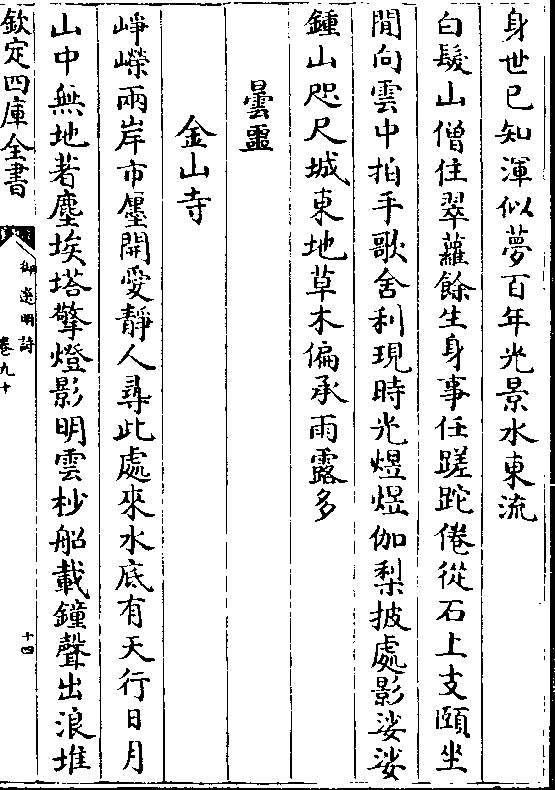 身世已知渾似夢百年光景水東流
白髮山僧住翠蘿餘生身事任蹉跎倦從石上支頤坐
閒向雲中拍手歌舍利現時光煜煜伽梨披處影娑娑
鍾山咫尺城東地草木偏承雨露多
曇噩
金山寺
崢嶸兩岸市廛開愛靜人尋此處來水底有天行日月
山中無地著塵埃塔擎燈影明雲杪船載鐘聲出浪堆
欽定四庫全書
御選明詩
卷九十
十四